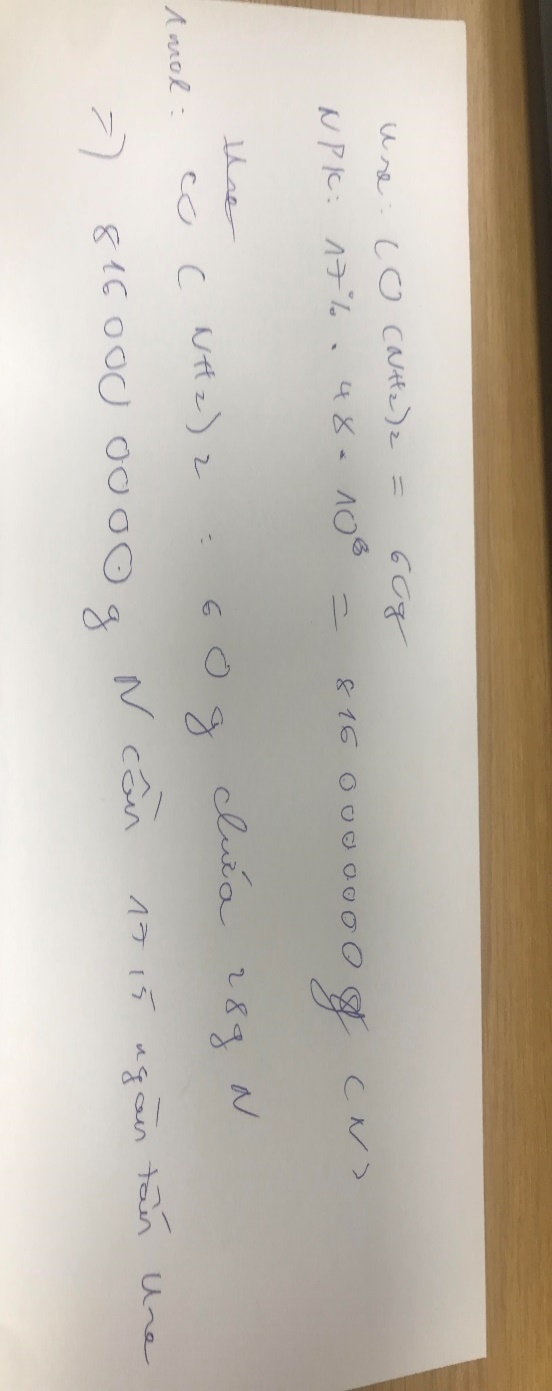 Ure: CO(NH2)2 = 60g
NPK: 17% . 48 . 10⁸ = 816000000g (N)
Ure
1 mol: CO(NH2)2 : 60g chứa 28g N
=) 816000 0000g N cần 17 15 ngàn tấn Ure